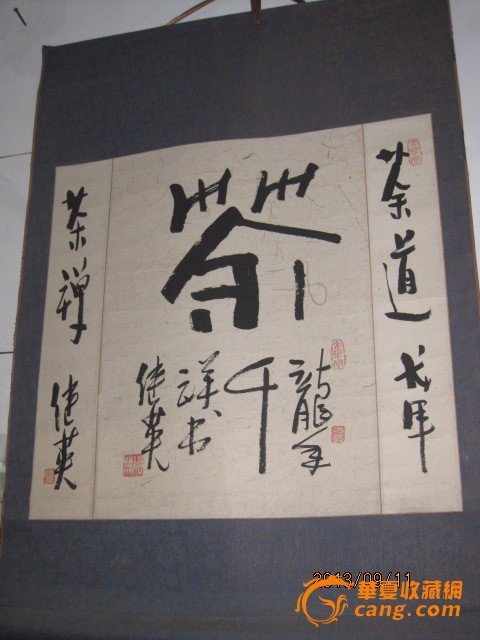 茶道
戊军
茶
龙年
千
祥书
继英
茶禅
继英
2013/09/11
華夏收藏網
cang.com